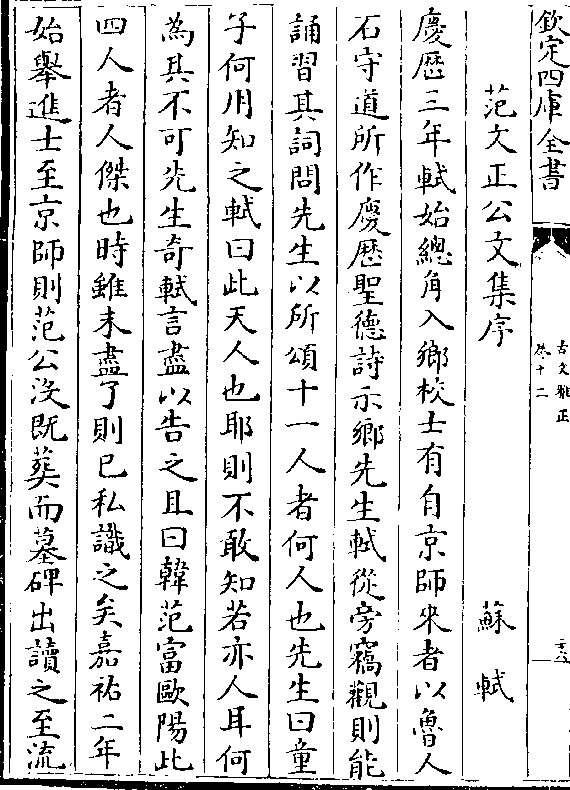 欽定四庫全書
古文雅正
卷十二
范文正公文集序
蘇軾
慶厯三年軾始總角入鄉校士有自京師來者以魯人
石守道所作慶厯聖德詩示鄉先生軾從旁竊觀則能
誦習其詞問先生以所頌十一人者何人也先生曰童
子何用知之軾曰此天人也耶則不敢知若亦人耳何
為其不可先生奇軾言盡以告之且曰韓范富歐陽此
四人者人傑也時雖未盡了則已私識之矣嘉祐二年
始舉進士至京師則范公沒既葬而墓碑出讀之至流